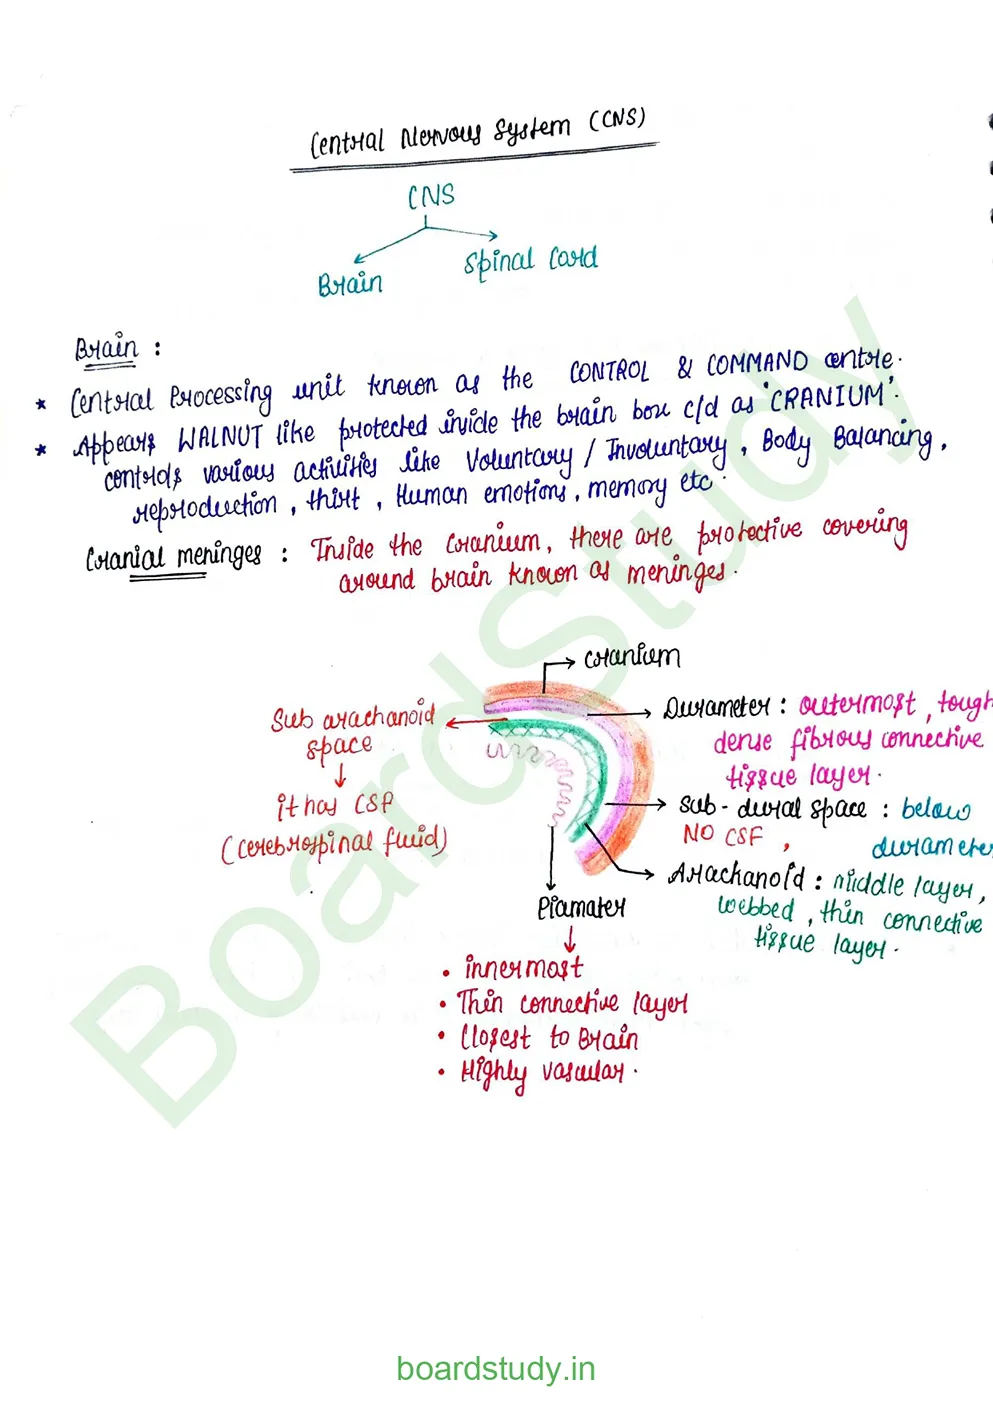 Central Nervous System (CNS)
CNS
Brain
Spinal Cord
Brain :
* Central Processing unit known as the CONTROL & COMMAND centre.
* Appears WALNUT like protected inside the brain box c/d as 'CRANIUM'.
controls various activities like Voluntary / Involuntary, Body Balancing,
reproduction, thirt, Human emotions, memory etc.
Cranial meninges : Inside the Cranium, there are protective covering
around brain known as meninges.
Cranium
Sub arachanoid
space
it has CSF
(cerebrospinal fluid)
Durameter : outermost, tough
dense fibrous connective
tissue layer.
Sub-dural space : below
NO CSF, durameter
Arachanoid : middle layer,
webbed, thin connective
tissue layer.
Piamater
• innermost
• Thin connective layer
• Closest to Brain
• Highly vascular.
BoardStudy
boardstudy.in